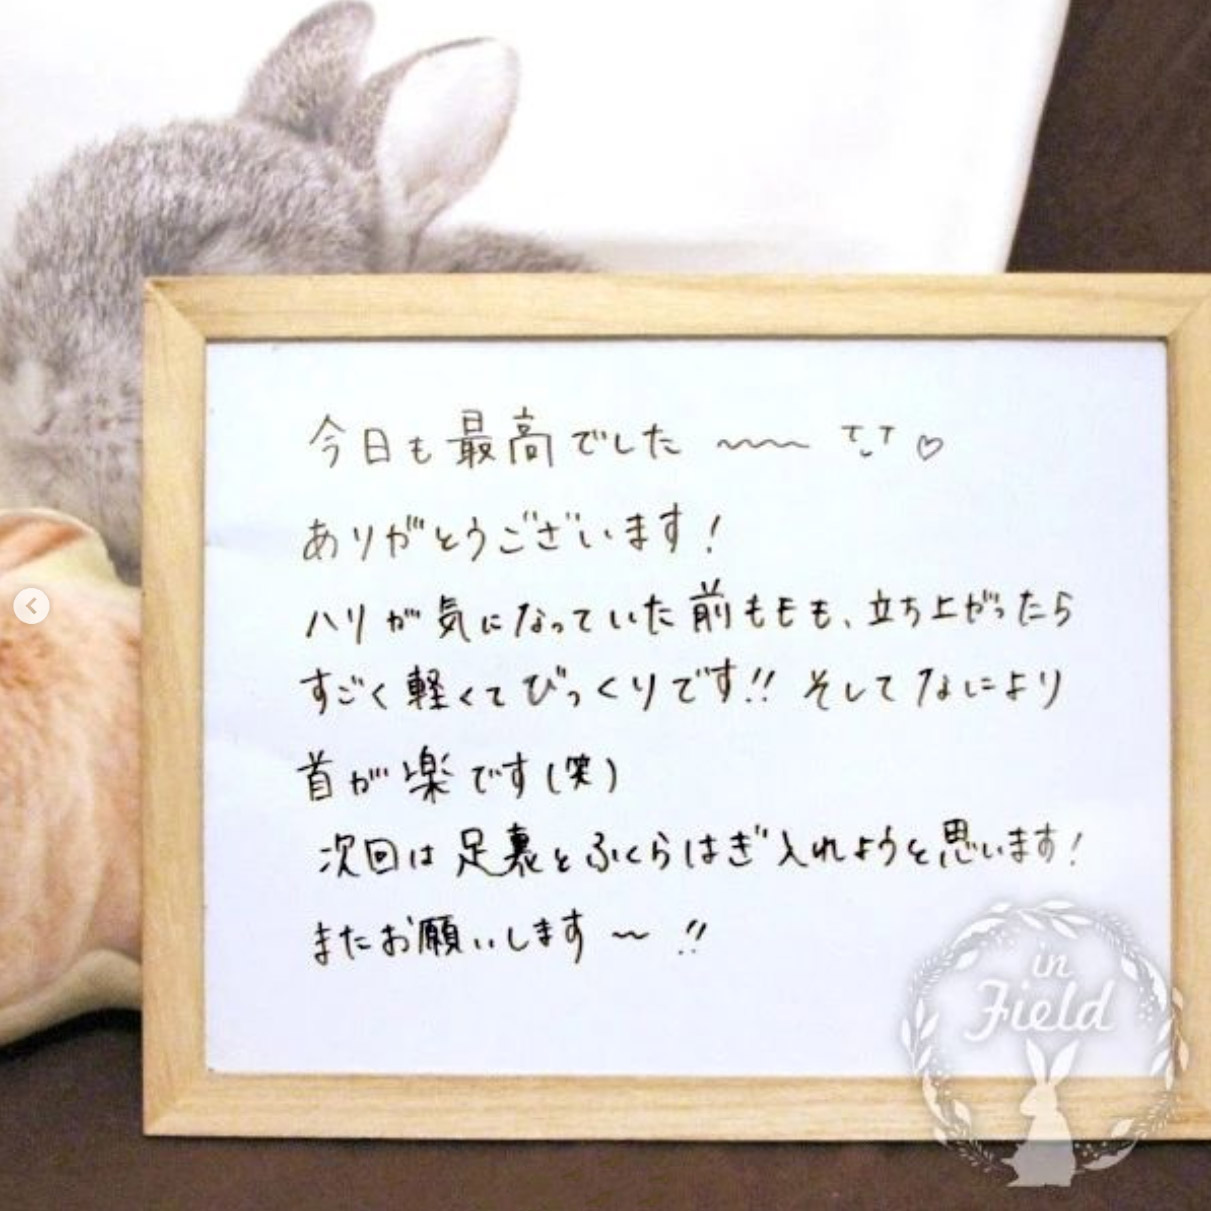 今日も最高でした 〰 T.T ♡
ありがとうございます！
ハリが気になっていた前もも も、立ち上がったら
すごく軽くてびっくりです!! そしてなにより
首が楽です(笑)
次回は足裏とふくらはぎ入れようと思います！
またお願いします〜 !!
in
Field